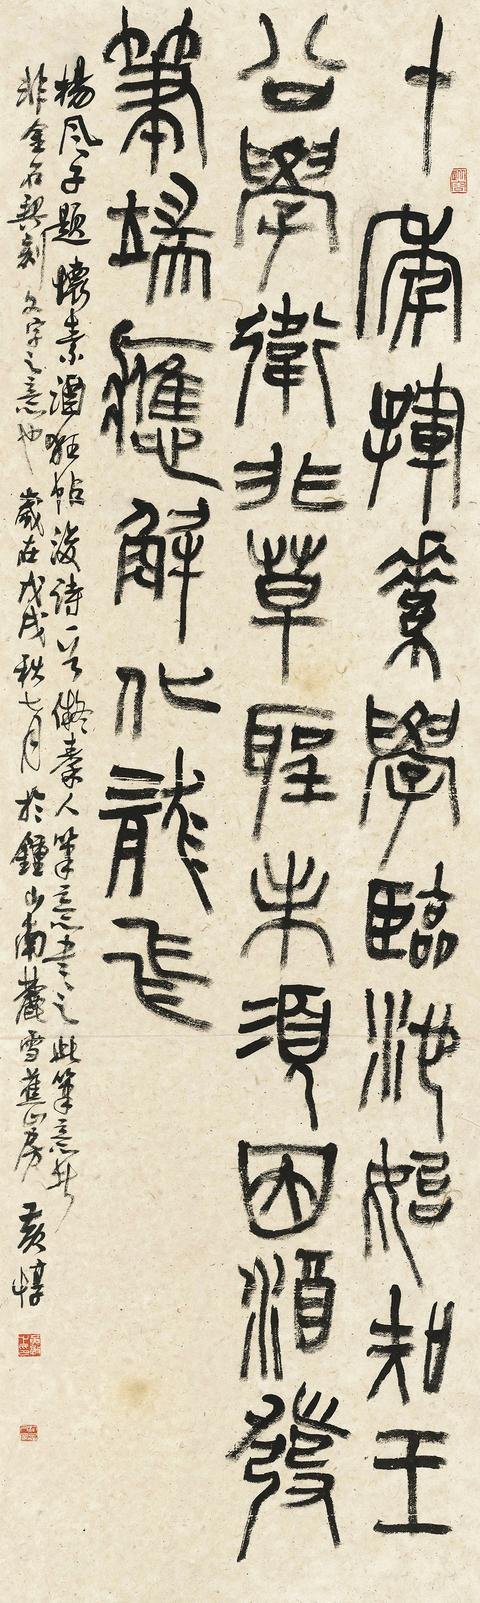 十年揮素學臨池始知王
公學衛非草聖未須因酒發
筆端應解化龍飛
楊風子題懷素酒狂帖後詩一首擬秦人筆意書之此筆意者
非金石契刻文字之意也歲在戊戌秋七月於鍾山南麓雪蕉山房黃惇